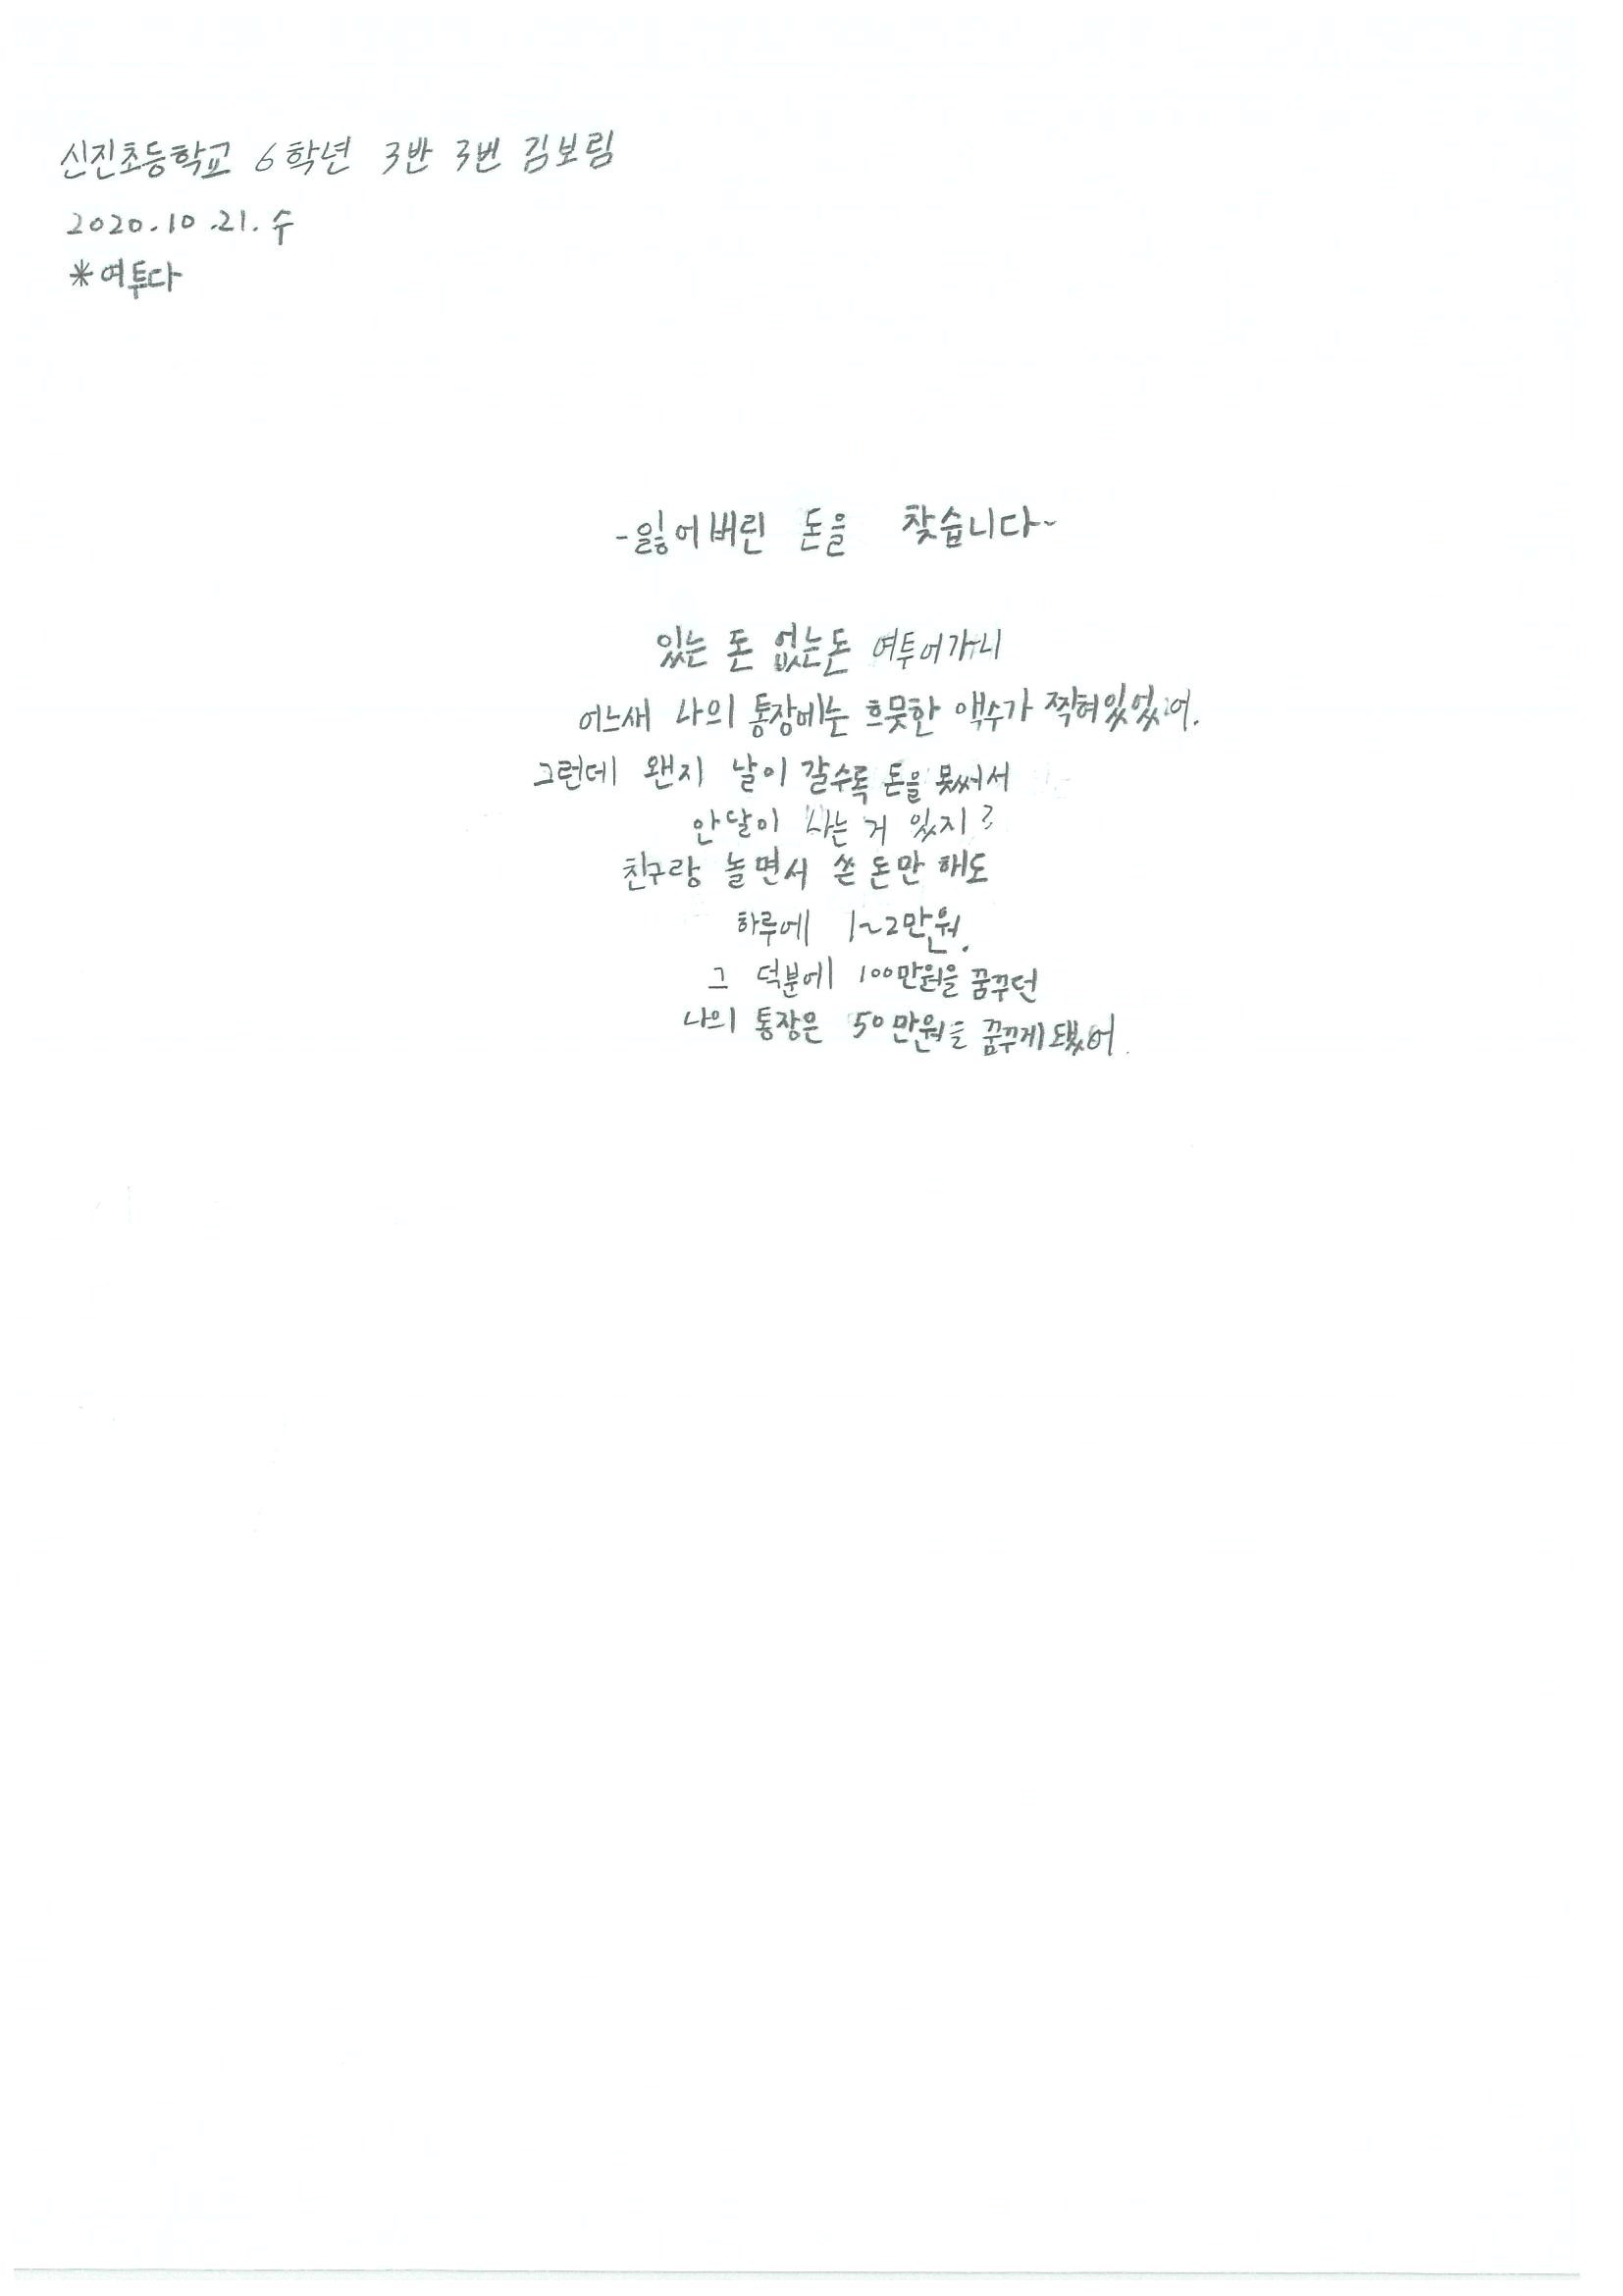 신진초등학교 6학년 3반 3번 김보림
2020.10.21.수
*여투다
-잃어버린 돈을 찾습니다-
있는 돈 없는돈 여투어가니
어느새 나의 통장에는 흐뭇한 액수가 찍혀있었어.
그런데 왠지 날이 갈수록 돈을 못써서
안달이 나는 거 있지?
친구랑 놀면서 쓴 돈만 해도
하루에 1~2만원.
그 덕분에 100만원을 꿈꾸던
나의 통장은 50만원을 꿈꾸게됐어.